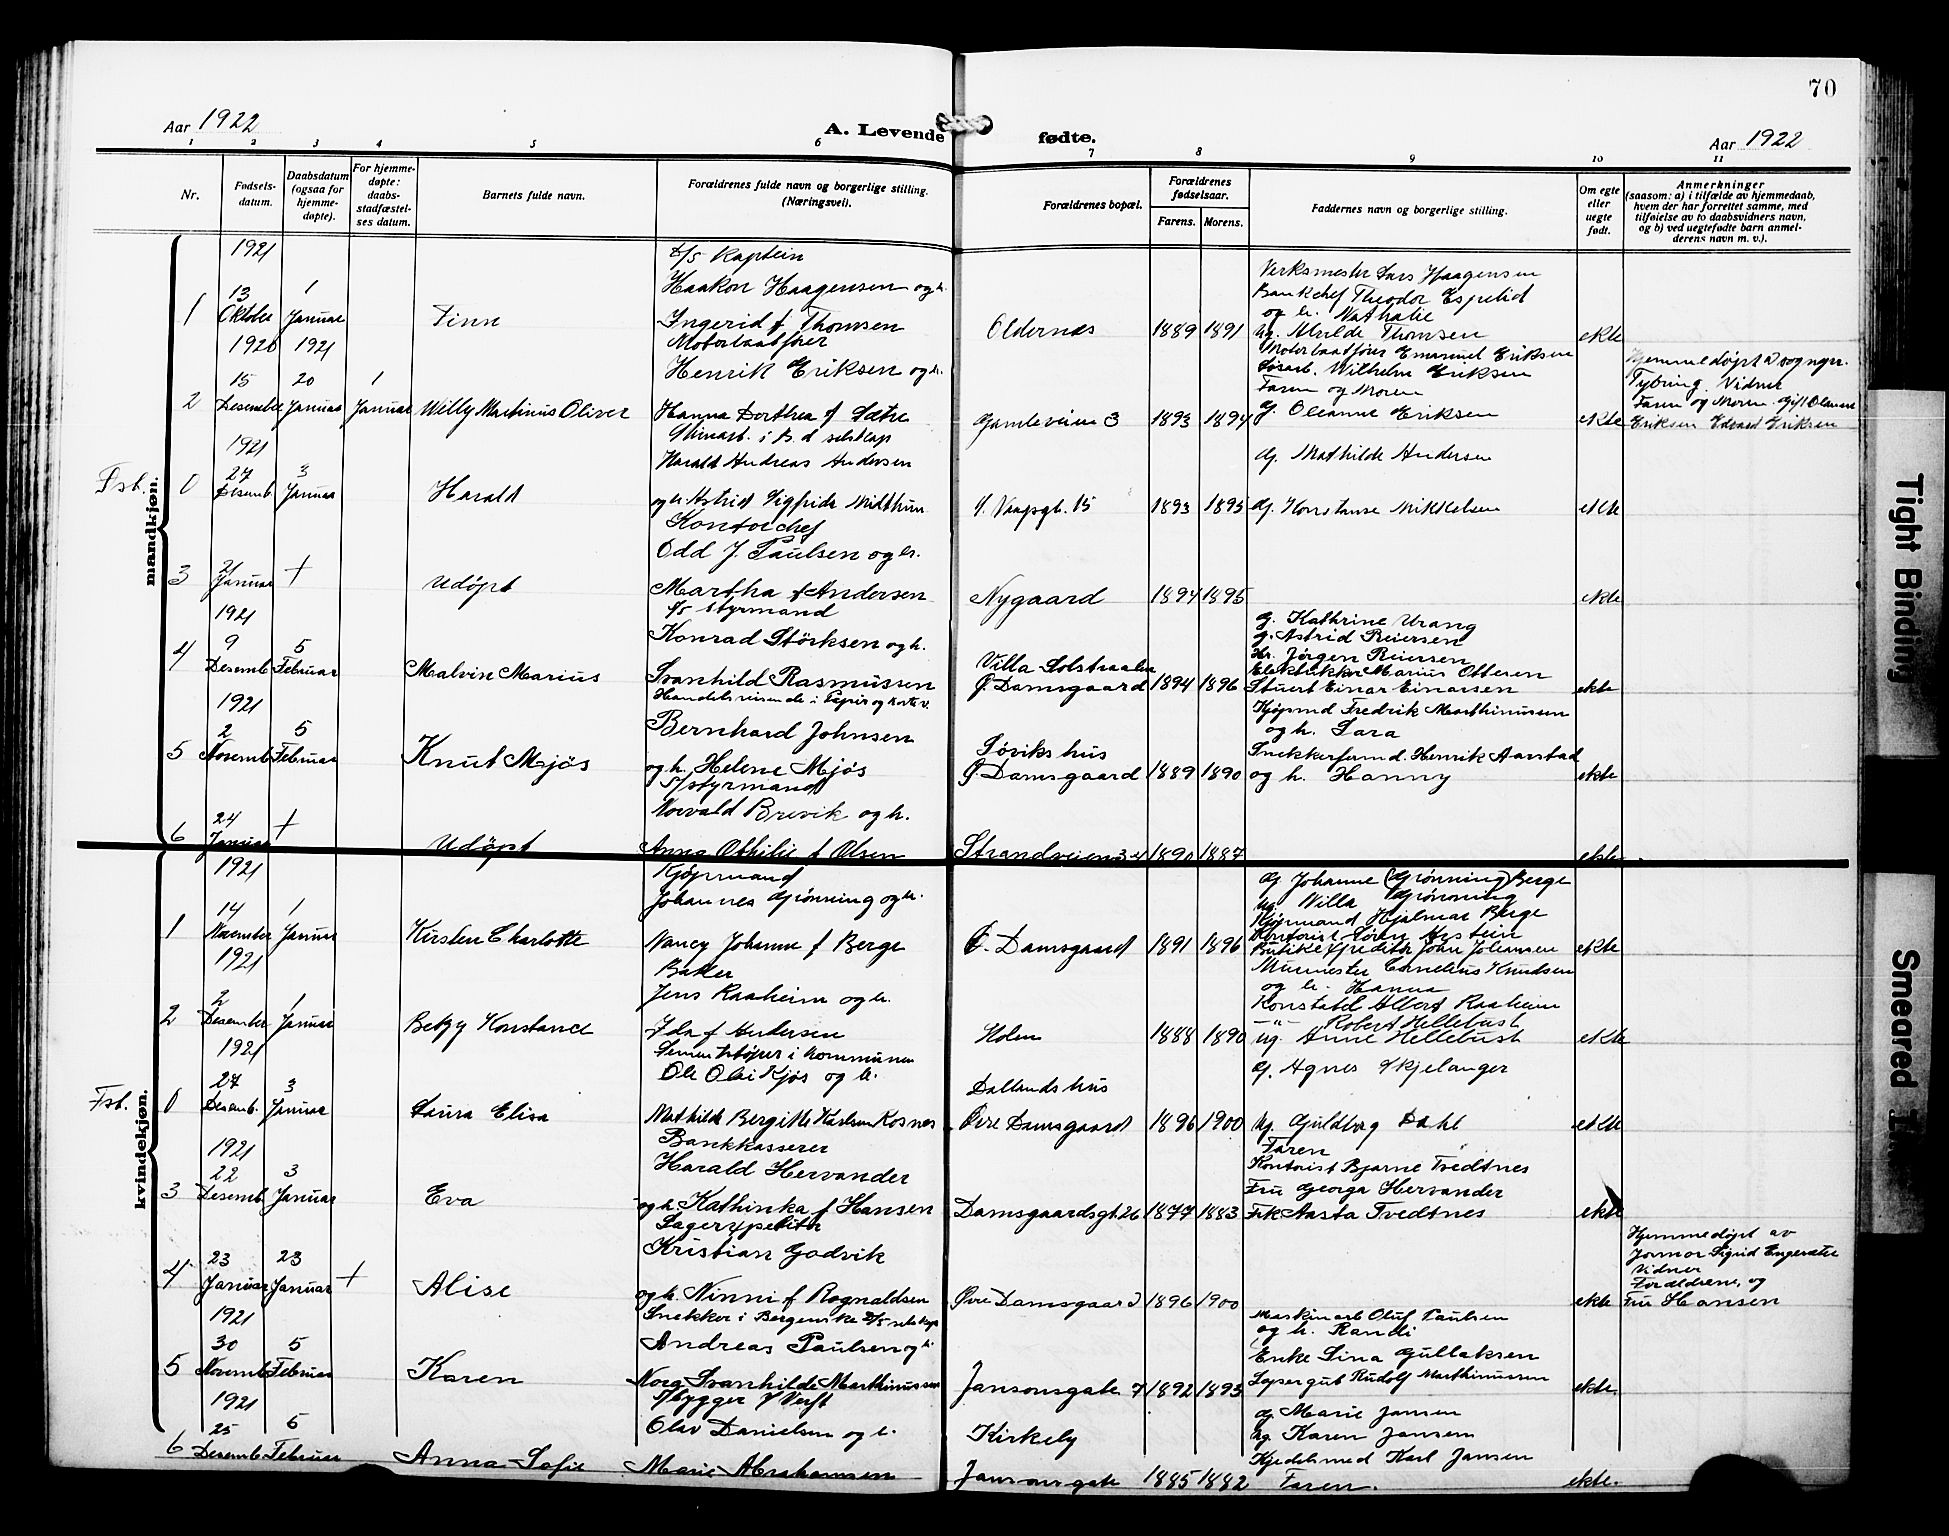 70
Aar 1922
A. Levende fødte.
Aar 1922
1 2 3 4 5 6 7 8 9 10 11
Nr.
Fødsels-datum.
Daabsdatum (ogsaa for hjemme-døpte).
For hjemme-døpte: daabs-stadfæstel-ses datum.
Barnets fulde navn.
Forældrenes fulde navn og borgerlige stilling. (Næringsvei).
Forældrenes bopæl.
Forældrenes fødselsaar.
Farens. Morens.
Faddernes navn og borgerlige stilling.
Om egte eller uegte født.
Anmerkninger (saasom: a) i tilfælde av hjemmedaab, hvem der har forrettet samme, med tilføielse av to daabsvidners navn, og b) ved uegtefødte barn anmel-derens navn m. v.).
mandkjøn.
1921
13 1
1 Oktober Januar Finn
s/s Kaptein
Haakon Haagensen og h.
Ingerid f Thomsen
Oldernæs 1889 1891
Verksmester Lars Haagensen
Bankchef Theodor Espelid
og h. Nathalie
Ug. Thomsen
ekte
1920 1921
15 20 1
2 Desember Januar Januar Willy Martinus Oliver
Motorbaatfører
Henrik Eriksen og h.
Hanna Dorthea f Sætre
Gamleveien 3 1893 1894
Motorbaatfører Emanuel Eriksen
Løsarb. Wilhelm Eriksen
Faren og Moren
G. Oleanne Eriksen
ekte
Hjemmedøpt av sogнepr.
Tybring. Vidner
Faren og Moren. Gift Oleanne
Eriksen Edvard Eriksen
1921
27 3
Fsb. 0 Desemb. Januar Harald
i B. d selskap
Harald Andreas Andersen
og h. Astrid Sigfrida Midthun
1893 1895
G. Mathilde Andersen
G. Konstanse Mikkelsen
ekte
21
3 Januar + Udøpt
Kontorchef
Odd J. Paulsen og h.
Martha f Andersen
Nygaard 1894 1895
ekte
1921
9 5
4 Desemb. Februar Malvin Marius
s/s styrmand
Konrad Störksen og h.
Svanhild Rasmussen
Villa Solstraalen
Ø. Damsgaard 1894 1896
G. Kathrine Urang
G. Astrid Reiersen
Hr. Jörgen Reiersen
Elektrikker Marius Ottesen
Stuert Einar Einarsen
ekte
1921
2 5
5 Novemb. Februar Knut Mjøs
Handelsreisende i Papir og
Bernhard Johnsen
og h. Helene Mjøs
Søviks hus
Ø. Damsgaard 1889 1890
Kjøpmd Fredrik Marthinussen
og h. Sara
Snekkerformd. Henrik Aarstad
og h. Hanny
ekte
24
6 Januar + Udøpt
S/styrmand
Norvald Brevik og h.
Anna Othilie f Olsen
Strandveien 34 1890 1887
ekte
kvindekjøn.
1921
14 1
1 November Januar Kirsten Charlotte
Kjøpmand
Johannes Grönning og h.
Nancy Johanne f Berge
Ø. Damsgaard 1891 1896
G. Johanne (Grönning) Berge
Ug. Villa Grönning
Kjøpmand Hjalmar Berge
Kontorist Sören Arstein
Johan Johansen
ekte
1921
2 1
2 Desember Januar Betzy Konstance
Baker
Jens Raaheim og h.
Ida f Andersen
Holen 1888 1890
Murmester Cornelius Knudsen
og h. Hanna
Konstabel Albert Raaheim
—"— Robert Hellebust
Ug. Anne Hellebust
ekte
1921
27 3
Fsb. 0 Desemb. Januar Laura Elisa
Sementstøper i kommunen
Ole Olai Kjøs og h.
Mathilde Bergitte Karlsen Rosnes
Dallands hus
Øvre Damsgaard 1896 1900
G. Agnes Skjelanger
Ug. Guldborg Dahl
ekte
1921
22 3
3 Desemb. Januar Eva
Bankkasserer
Harald Hervander
og h. Kathinka f Hansen
Damsgaardsgt. 26 1877 1883
Faren
Kontorist Bjarne Tvedtnes
Fru Georga Hervander
Frk Aasta Tvedtnes
ekte
23 23
4 Januar Januar + Alise
Lagerexpeditør
Kristian Godvik
og h. Ninni f Rognaldsen
Øvre Damsgaard 1896 1900
ekte
Hjemmedøpt av
Jormor Sigrid Engesæter
Vidner
Forældrene, og
Fru Hansen
1921
30 5
5 Novemb. Februar Karen
Snekker i Bergenske D/S selskap
Andreas Paulsen og h.
Nora Svanhilde Marthinussen
Jansonsgate 7 1892 1893
Maskinarb Oluf Paulsen
og h. Randi
Enke Lina Gullaksen
Lopergut Rudolf Marthinussen
ekte
1921
25 5
6 Desemb. Februar Anna Sofie
S/bygger
Olav Danielsen og h.
Marie Abrahamsen
Kirkely
Jansonsgate 1885 1882
G. Marie Jansen
Ug. Karen Jansen
Kjedelsmed Karl Jansen
Faren.
ekte.
Tight Binding
Smeared